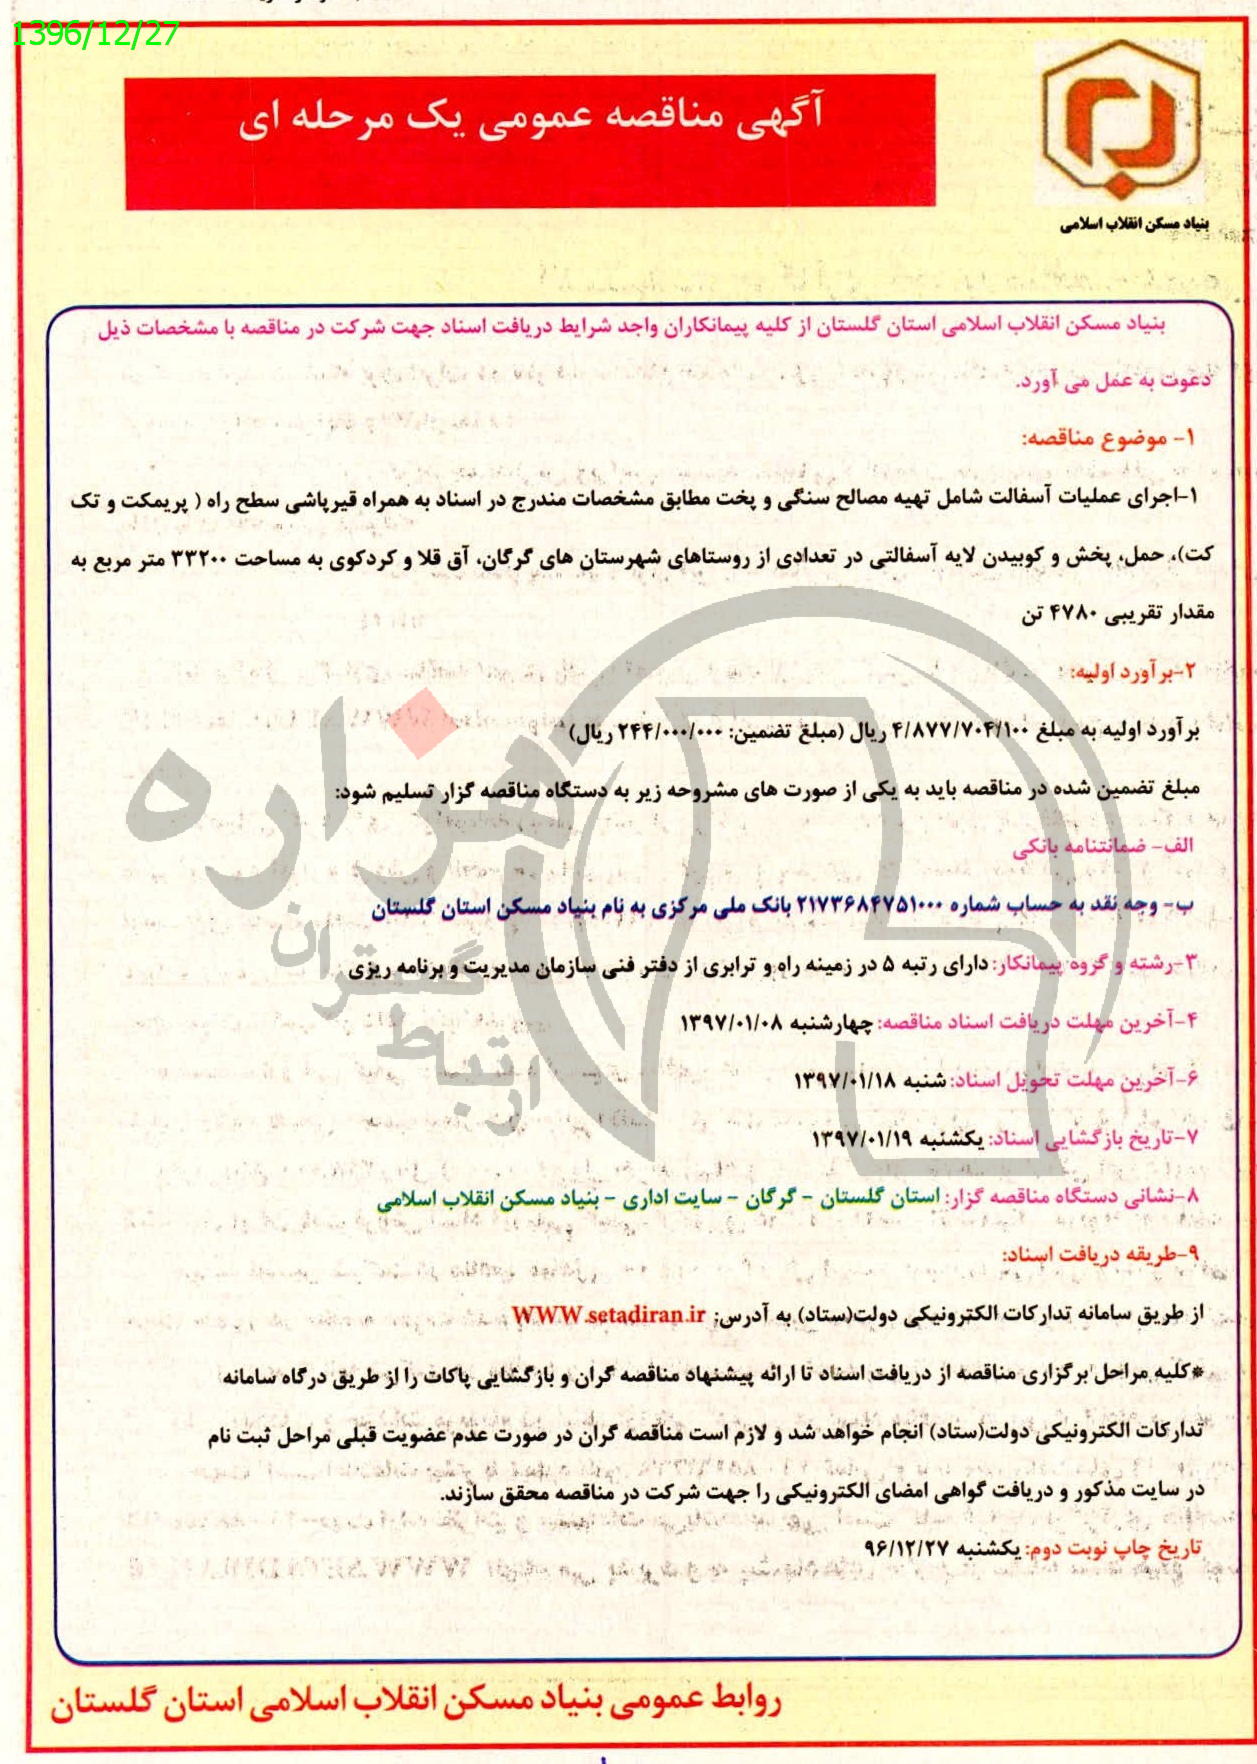 1396/12/27
آگهی مناقصه عمومی یک مرحله ای
بنیاد مسکن انقلاب اسلامی
بنیاد مسکن انقلاب اسلامی استان گلستان از کلیه پیمانکاران واجد شرایط دریافت اسناد جهت شرکت در مناقصه با مشخصات ذیل
دعوت به عمل می آورد.
۱- موضوع مناقصه:
۱-اجرای عملیات آسفالت شامل تهیه مصالح سنگی و پخت مطابق مشخصات مندرج در اسناد به همراه قیرپاشی سطح راه ( پریمکت و تک
کت)، حمل، پخش و کوبیدن لایه آسفالتی در تعدادی از روستاهای شهرستان های گرگان، آق قلا و کردکوی به مساحت ۳۳۲۰۰ متر مربع به
مقدار تقریبی ۴۷۸۰ تن
۲-برآورد اولیه:
برآورد اولیه به مبلغ ۴/۸۷۷/۷۰۴/۱۰۰ ریال (مبلغ تضمین: ۲۴۴/۰۰۰/۰۰۰ ریال)
مبلغ تضمین شده در مناقصه باید به یکی از صورت های مشروحه زیر به دستگاه مناقصه گزار تسلیم شود:
الف- ضمانتنامه بانکی
ب- وجه نقد به حساب شماره ۲۱۷۳۶۸۴۷۵۱۰۰۰ بانک ملی مرکزی به نام بنیاد مسکن استان گلستان
۳-رشته و گروه پیمانکار: دارای رتبه ۵ در زمینه راه و ترابری از دفتر فنی سازمان مدیریت و برنامه ریزی
۴-آخرین مهلت دریافت اسناد مناقصه: چهارشنبه ۱۳۹۷/۰۱/۰۸
۶-آخرین مهلت تحویل اسناد: شنبه ۱۳۹۷/۰۱/۱۸
۷-تاریخ بازگشایی اسناد: یکشنبه ۱۳۹۷/۰۱/۱۹
۸-نشانی دستگاه مناقصه گزار: استان گلستان - گرگان - سایت اداری - بنیاد مسکن انقلاب اسلامی
۹-طریقه دریافت اسناد:
از طریق سامانه تدارکات الکترونیکی دولت(ستاد) به آدرس: WWW.setadiran.ir
*کلیه مراحل برگزاری مناقصه از دریافت اسناد تا ارائه پیشنهاد مناقصه گران و بازگشایی پاکات را از طریق درگاه سامانه
تدارکات الکترونیکی دولت(ستاد) انجام خواهد شد و لازم است مناقصه گران در صورت عدم عضویت قبلی مراحل ثبت نام
در سایت مذکور و دریافت گواهی امضای الکترونیکی را جهت شرکت در مناقصه محقق سازند.
تاریخ چاپ نوبت دوم: یکشنبه ۹۶/۱۲/۲۷
روابط عمومی بنیاد مسکن انقلاب اسلامی استان گلستان
هزاره
ارتباط
گستران